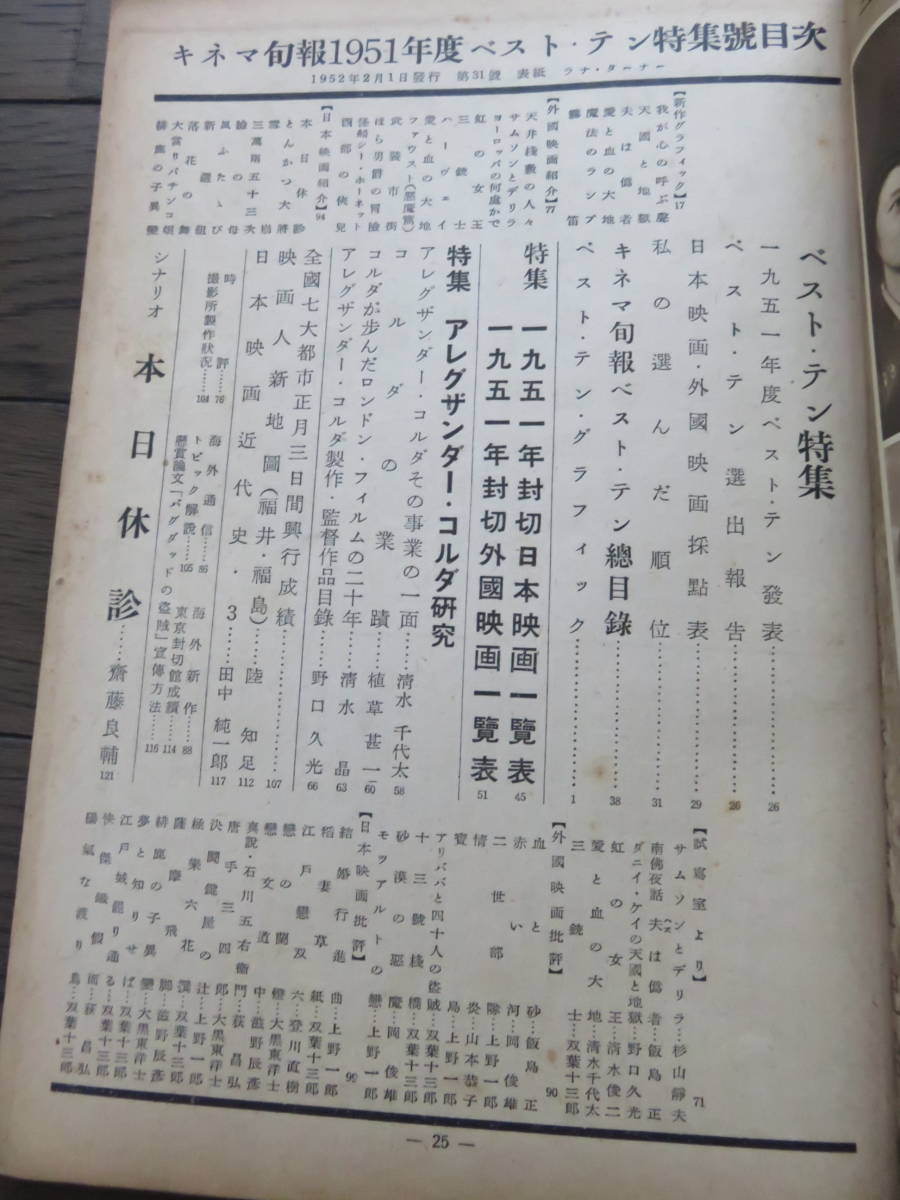 キネマ旬報1951年度ベスト・テン特集號目次
1952年2月1日發行　第31號　表紙　ラナ・ターナー
ベスト・テン特集
一九五一年度ベスト・テン發表……26
ベスト・テン選出報告……26
日本映画・外國映画採點表……29
私の選んだ順位……31
キネマ旬報ベスト・テン總目錄……38
ベスト・テン・グラフィック……1
特集　一九五一年封切日本映画一覽表　45
一九五一年封切外國映画一覽表　51
特集　アレグザンダー・コルダ研究
アレグザンダー・コルダその事業の一面……清水千代太　58
コルダの業蹟……植草甚一　60
コルダが歩んだロンドン・フィルムの二十年……清水晶　63
アレグザンダー・コルダ製作・監督作品目錄……野口久光　66
全國七大都市正月三日間興行成績……107
映画人新地圖（福井・福島）……陸知足　112
日本映画近代史・3……田中純一郎　117
時評……76
海外通信……86
海外新作……88
撮影所製作狀況……104
トピック解說……105
東京封切館成績……114
懸賞論文「バグダッドの盗賊」宣傳方法……116
シナリオ　本日休診……齋藤良輔　121
【新作グラフィック】17
我が心の呼ぶ聲
天國と地獄
夫は僞者
愛と血の大地
魔法のランプ
【外國映画紹介】77
天井棧敷の人々
サムソンとデリラ
ヨーロッパの何處かで
虹の女王
三銃士
ハーヴェイ
愛と血の大地
ファウスト（惡魔篇）
武裝市街
ほら男爵の冒險
怪船シー・ホーネット
西部の俠兒
【日本映画紹介】94
本日休診
とんかつ大將
雪崩
三萬兩五十三次
瞼の母
風ふたゝび
新選組
落花の舞
大當りパチンコ娘
緋鹿の子異變
【試寫室より】71
サムソンとデリラ…杉山靜夫
南佛夜話　夫は僞者…飯島正
ダニイ・ケイの天國と地獄…野口久光
虹の女王…清水俊二
愛と血の大地…清水千代太
三銃士…双葉十三郎
【外國映画批評】90
血と砂…飯島正
赤い河…岡俊雄
二世部隊…上野一郎
情炎…山本恭子
寶島…上野一郎
アリババと四十人の盗賊…双葉十三郎
十三號棧橋…双葉十三郎
砂漠の惡魔…岡俊雄
モツアルトの戀…上野一郎
【日本映画批評】99
結婚行進曲…上野一郎
稻妻草紙…双葉十三郎
江戸戀双六…登川直樹
戀の蘭燈…大黒東洋士
戀文道中…滋野辰彥
眞說・石川五右衞門…荻昌弘
唐手三四郎…大黒東洋士
決鬪鍵屋の辻…上野一郎
極樂六花撰…双葉十三郎
薩摩飛脚…滋野辰彥
緋鹿の子異變…大黒東洋士
夢と知りせば…双葉十三郎
江戸城罷り通る…双葉十三郎
快傑鐵假面…荻昌弘
陽氣な渡り鳥…双葉十三郎
— 25 —